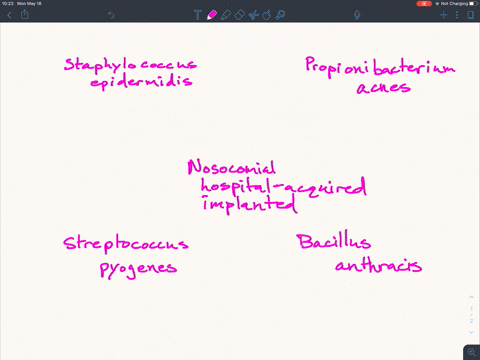 10:23 Mon May 18
Not Charging
Staphylococcus
epidermidis
Propionibacterium
acnes
Nosocomial
hospital-acquired
implanted
Streptococcus
pyogenes
Bacillus
anthracis